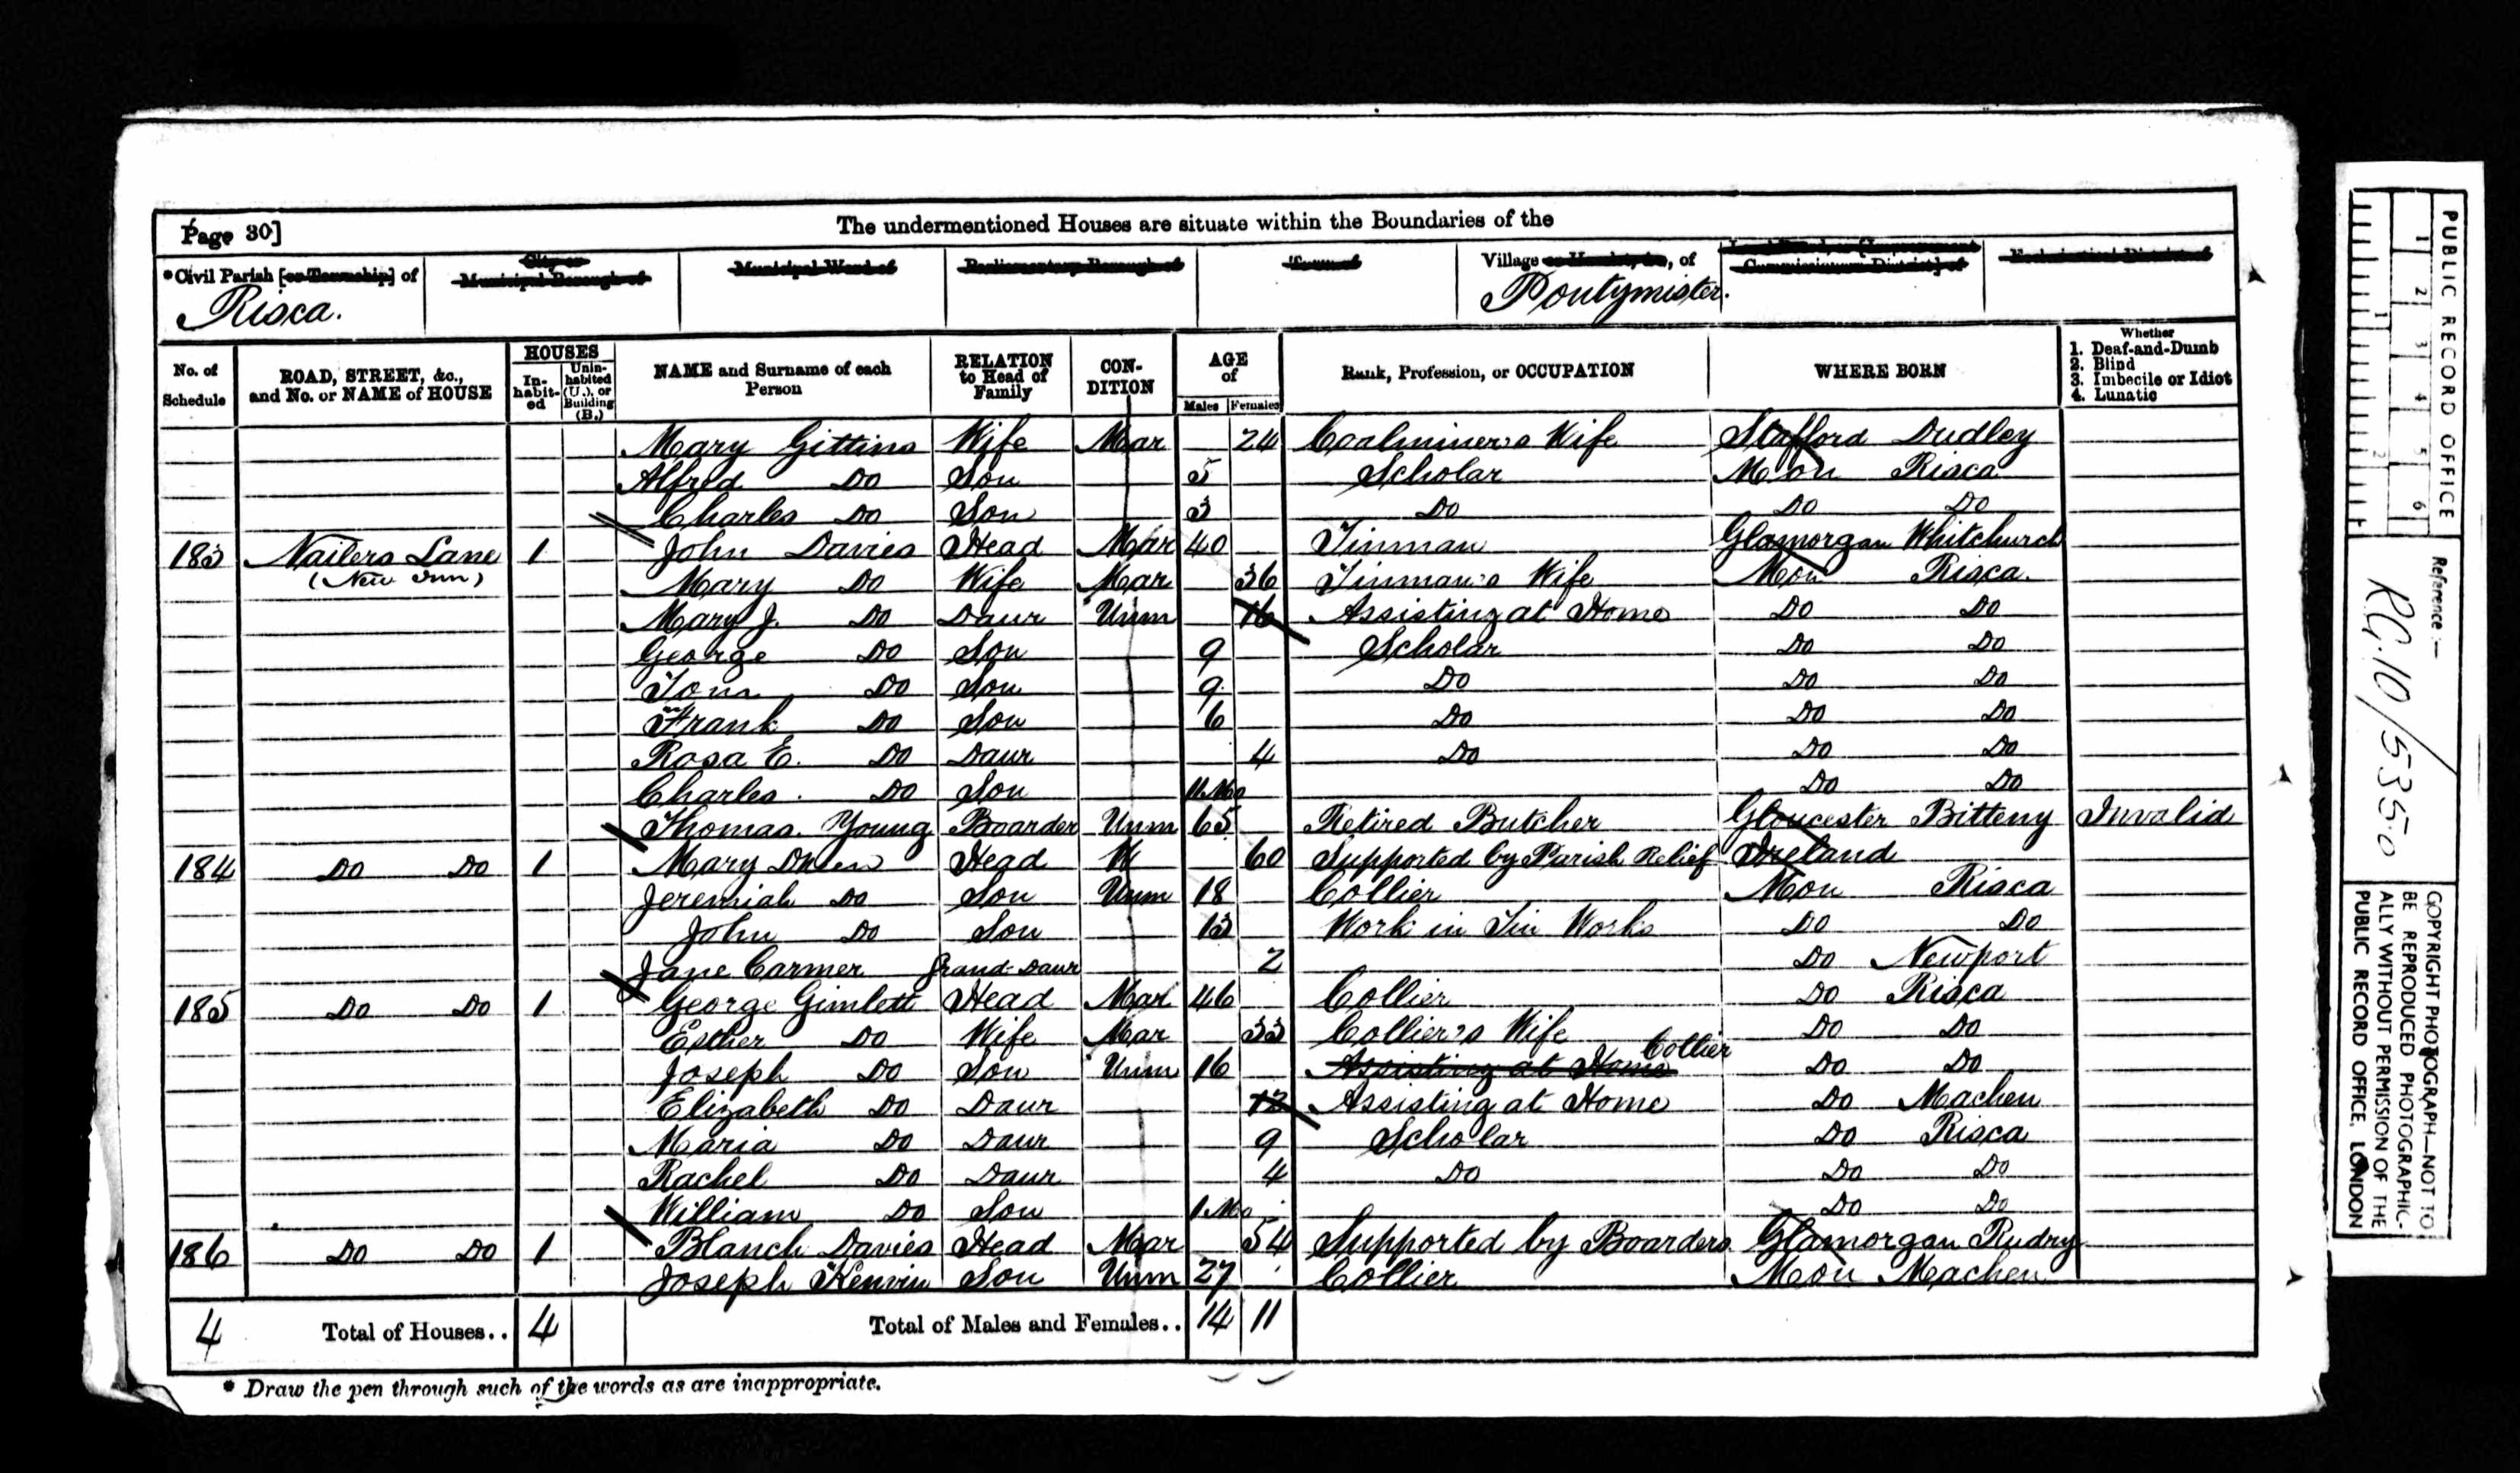 Page 30]
The undermentioned Houses are situate within the Boundaries of the
*Civil Parish [or Township] of
City or Municipal Borough of
Municipal Ward of
Parliamentary Borough of
Town of
Village or Hamlet, &c., of
Local Board, or [Improvement Commissioners District] of
Ecclesiastical District of
Risca.
Pontymister.
No. of Schedule
ROAD, STREET, &c., and No. or NAME of HOUSE
HOUSES
In-habit-ed
Unin-habited (U.), or Building (B.)
NAME and Surname of each Person
RELATION to Head of Family
CON-DITION
AGE of
Males
Females
Rank, Profession, or OCCUPATION
WHERE BORN
Whether
1. Deaf-and-Dumb
2. Blind
3. Imbecile or Idiot
4. Lunatic
Mary Gittins Wife Mar 24 Coalminer's Wife Stafford Dudley
Alfred Do Son 5 Scholar Mon Risca
Charles Do Son 3 Do Do Do
183 Nailers Lane 1 John Davies Head Mar 40 Tinman Glamorgan Whitchurch
(New Inn) Mary Do Wife Mar 36 Tinman's Wife Mon Risca.
Mary J. Do Daur Unm 16 Assisting at Home Do Do
George Do Son 9 Scholar Do Do
Tom Do Son 9 Do Do Do
Frank Do Son 6 Do Do Do
Rosa E. Do Daur 4 Do Do Do
Charles. Do Son 11 Mo Do Do
Thomas. Young Boarder Unm 65 Retired Butcher Gloucester Bitteny Invalid
184 Do Do 1 Mary Head W 60 Supported by Parish Relief Ireland
Jeremiah Do Son Unm 18 Collier Mon Risca
John Do Son 13 Work in Tin Works Do Do
Jane Carmer Grand-Daur 2 Do Newport
185 Do Do 1 George Gimlett Head Mar 46 Collier Do Risca
Esther Do Wife Mar 33 Collier's Wife Do Do
Joseph Do Son Unm 16 Assisting at Home Collier Do Do
Elizabeth Do Daur 12 Assisting at Home Do Machen
Maria Do Daur 9 Scholar Do Risca
Rachel Do Daur 4 Do Do Do
William Do Son 1 Mo Do Do
186 Do Do 1 Blanch Davies Head Mar 54 Supported by Boarders Glamorgan Rudry
Joseph Kenvin Son Unm 27 Collier Mon Machen
4 Total of Houses.. 4 Total of Males and Females.. 14 11
* Draw the pen through such of the words as are inappropriate.
PUBLIC RECORD OFFICE
1 2 3 4 5 6
1 2
Reference:—
RG.10/5350
COPYRIGHT PHOTOGRAPH—NOT TO
BE REPRODUCED PHOTOGRAPHIC-
ALLY WITHOUT PERMISSION OF THE
PUBLIC RECORD OFFICE, LONDON